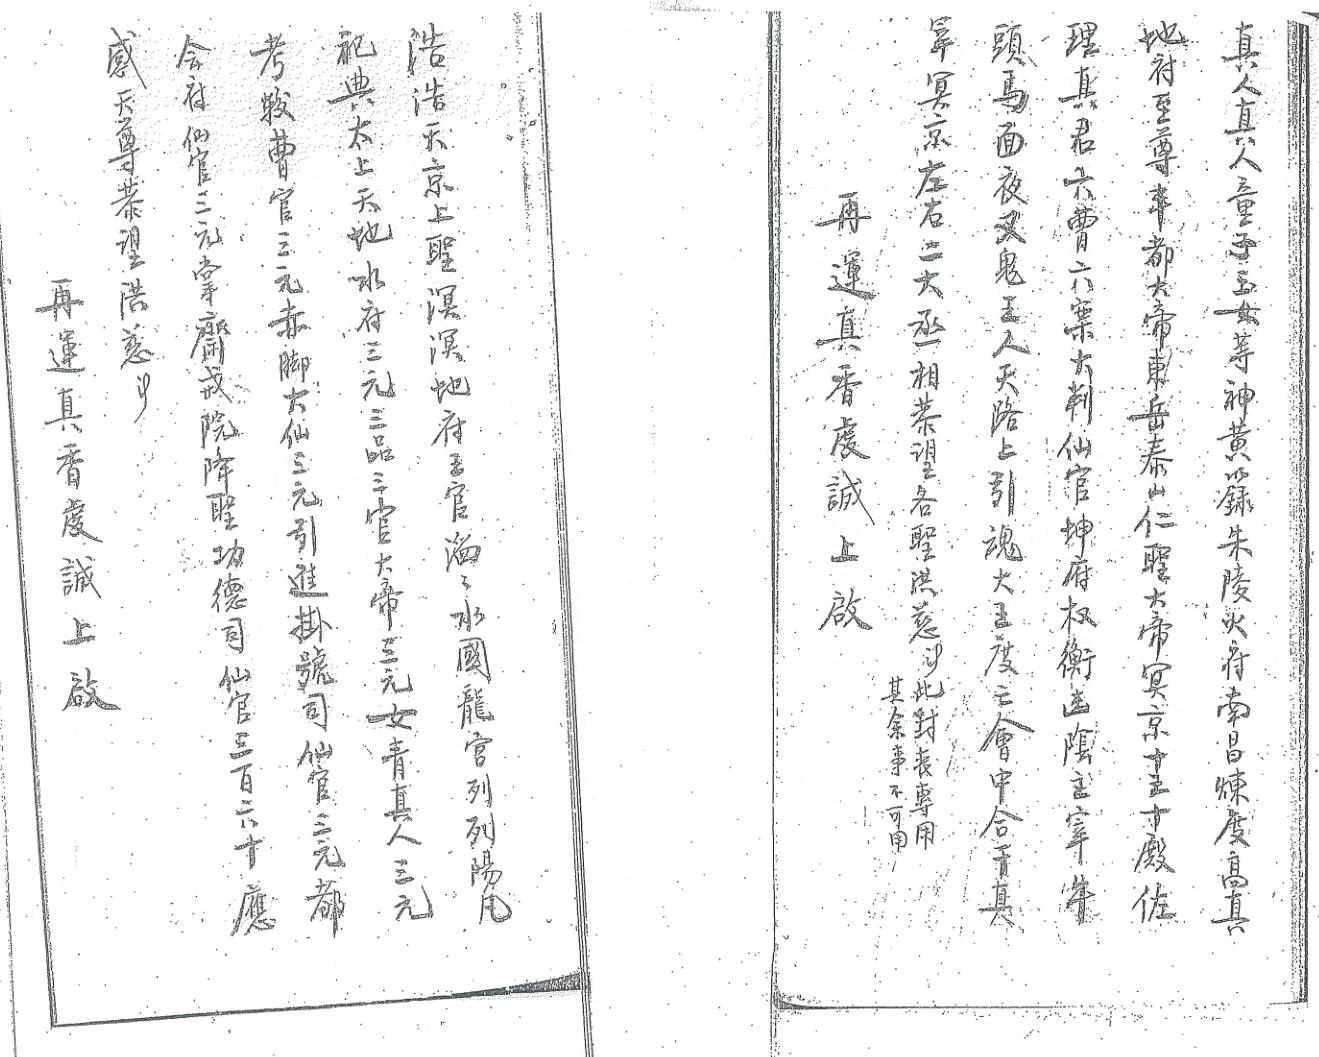 真人真人童子玉女等神黃籙朱陵火府南昌煉度高真
地府至尊酆都大帝東岳泰山仁聖大帝冥京十王十殿佐
理真君六曹六案大判仙官坤府权衡幽陰主宰牛
頭馬面夜叉鬼王人天路上引魂大王度亡會中合干真
宰冥京左右二大丞相恭望各聖洪慈
此對喪專用
其余事不可用
再運真香虔誠上啟
浩浩天京上聖溟溟地府王官滔々水國龍宮列列陽凡
祀典太上天地水府三元三品三官大帝三元女青真人三元
考較曹官三元赤脚大仙三元引進掛號司仙官三元都
会府仙官三元掌齋戒院降聖功德司仙官三百六十應
感天尊恭望洪慈
再運真香虔誠上啟